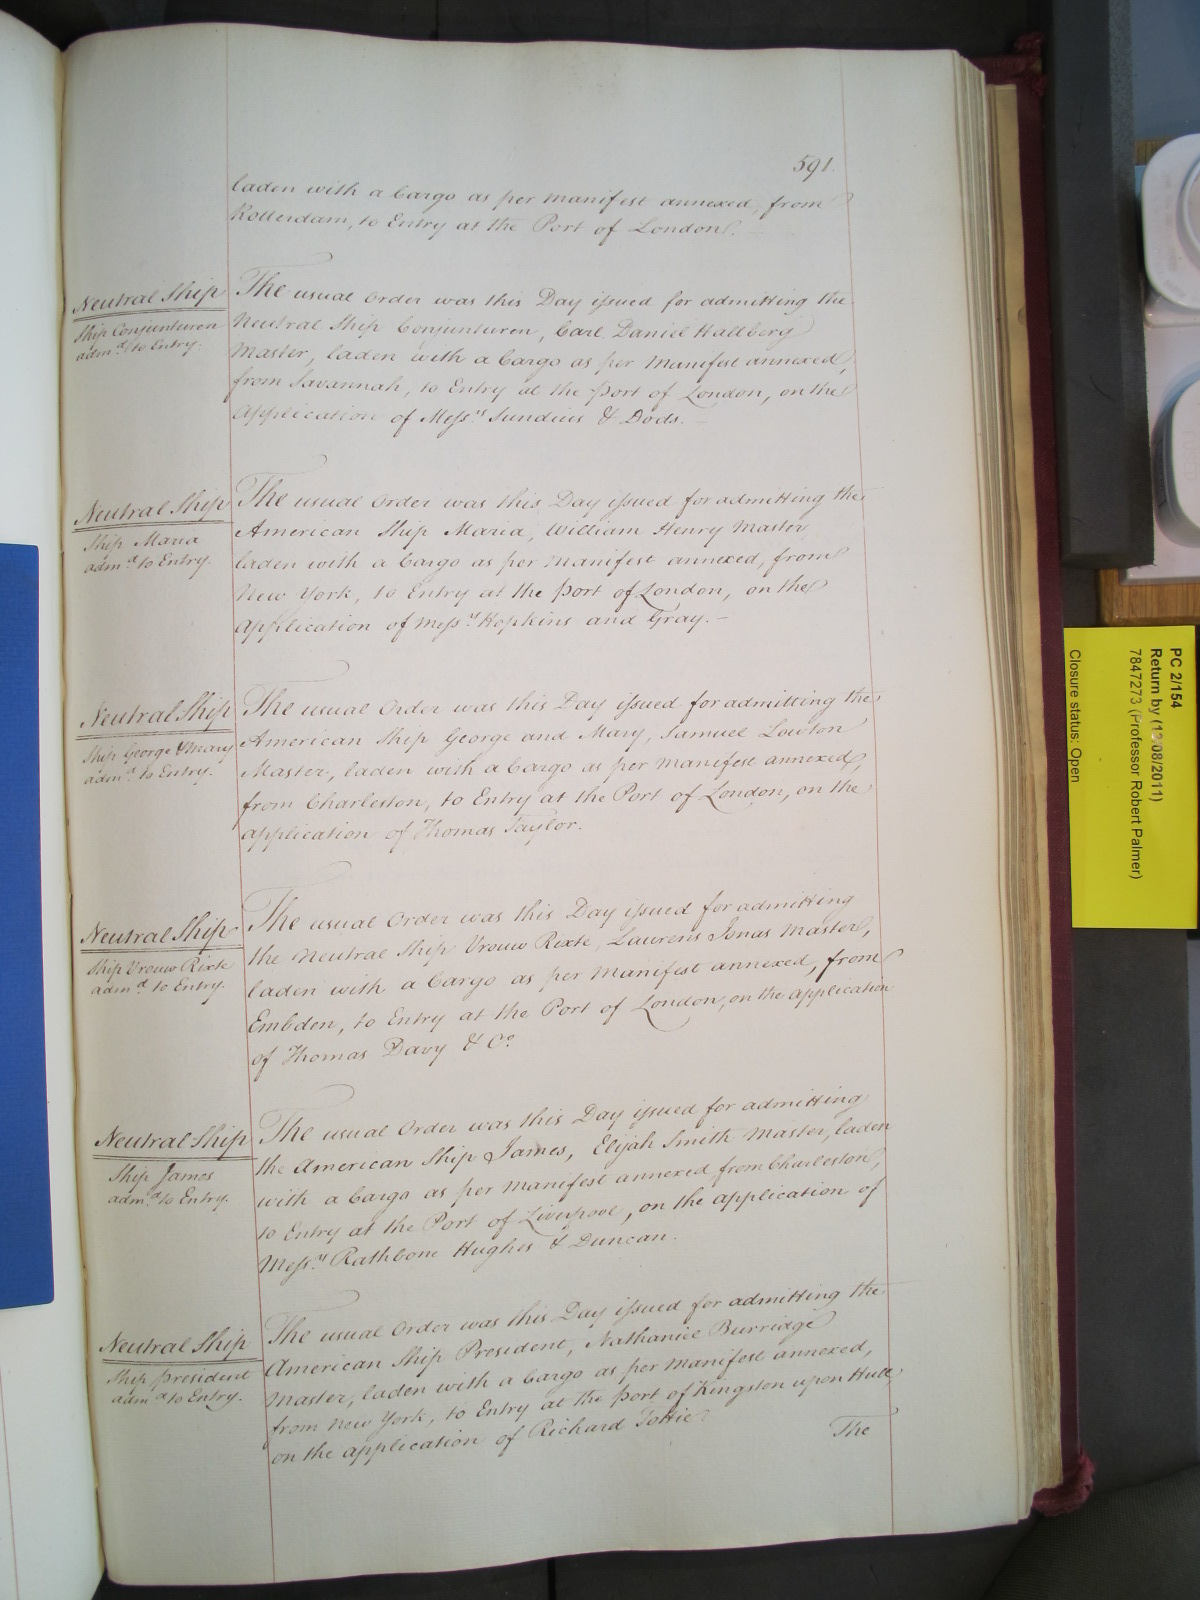 591.
laden with a Cargo as per Manifest annexed, from
Rotterdam, to Entry at the Port of London.
Neutral Ship
Ship Conjunturen
adm.d to Entry.
The usual Order was this Day issued for admitting the
Neutral Ship Conjunturen, Carl Daniel Hallberg
Master, laden with a Cargo as per Manifest annexed,
from Savannah, to Entry at the Port of London, on the
application of Mess.rs Sundius & Dods.
Neutral Ship
Ship Maria
adm.d to Entry.
The usual Order was this Day issued for admitting the
American Ship Maria, William Henry Master
laden with a Cargo as per Manifest annexed, from
New York, to Entry at the Port of London, on the
application of Mess.rs Hopkins and Gray.
Neutral Ship
Ship George & Mary
adm.d to Entry.
The usual Order was this Day issued for admitting the
American Ship George and Mary, Samuel Lowton
Master, laden with a Cargo as per Manifest annexed,
from Charleston, to Entry at the Port of London, on the
application of Thomas Taylor.
Neutral Ship
Ship Vrouw Rixte
adm.d to Entry.
The usual Order was this Day issued for admitting
the Neutral Ship Vrouw Rixte, Laurens Jonas Master,
laden with a Cargo as per Manifest annexed, from
Embden, to Entry at the Port of London, on the application
of Thomas Davy & Co.
Neutral Ship
Ship James
adm.d to Entry.
The usual Order was this Day issued for admitting
the American Ship James, Elijah Smith Master, laden
with a Cargo as per Manifest annexed from Charleston,
to Entry at the Port of Liverpool, on the application of
Mess.rs Rathbone Hughes & Duncan.
Neutral Ship
Ship President
adm.d to Entry.
The usual Order was this Day issued for admitting the
American Ship President, Nathaniel Burridge
Master, laden with a Cargo as per Manifest annexed,
from New York, to Entry at the Port of Kingston upon Hull,
on the application of Richard Tottie
The
PC 2/154
Return by (12/08/2011)
7847273 (Professor Robert Palmer)
Closure status: Open